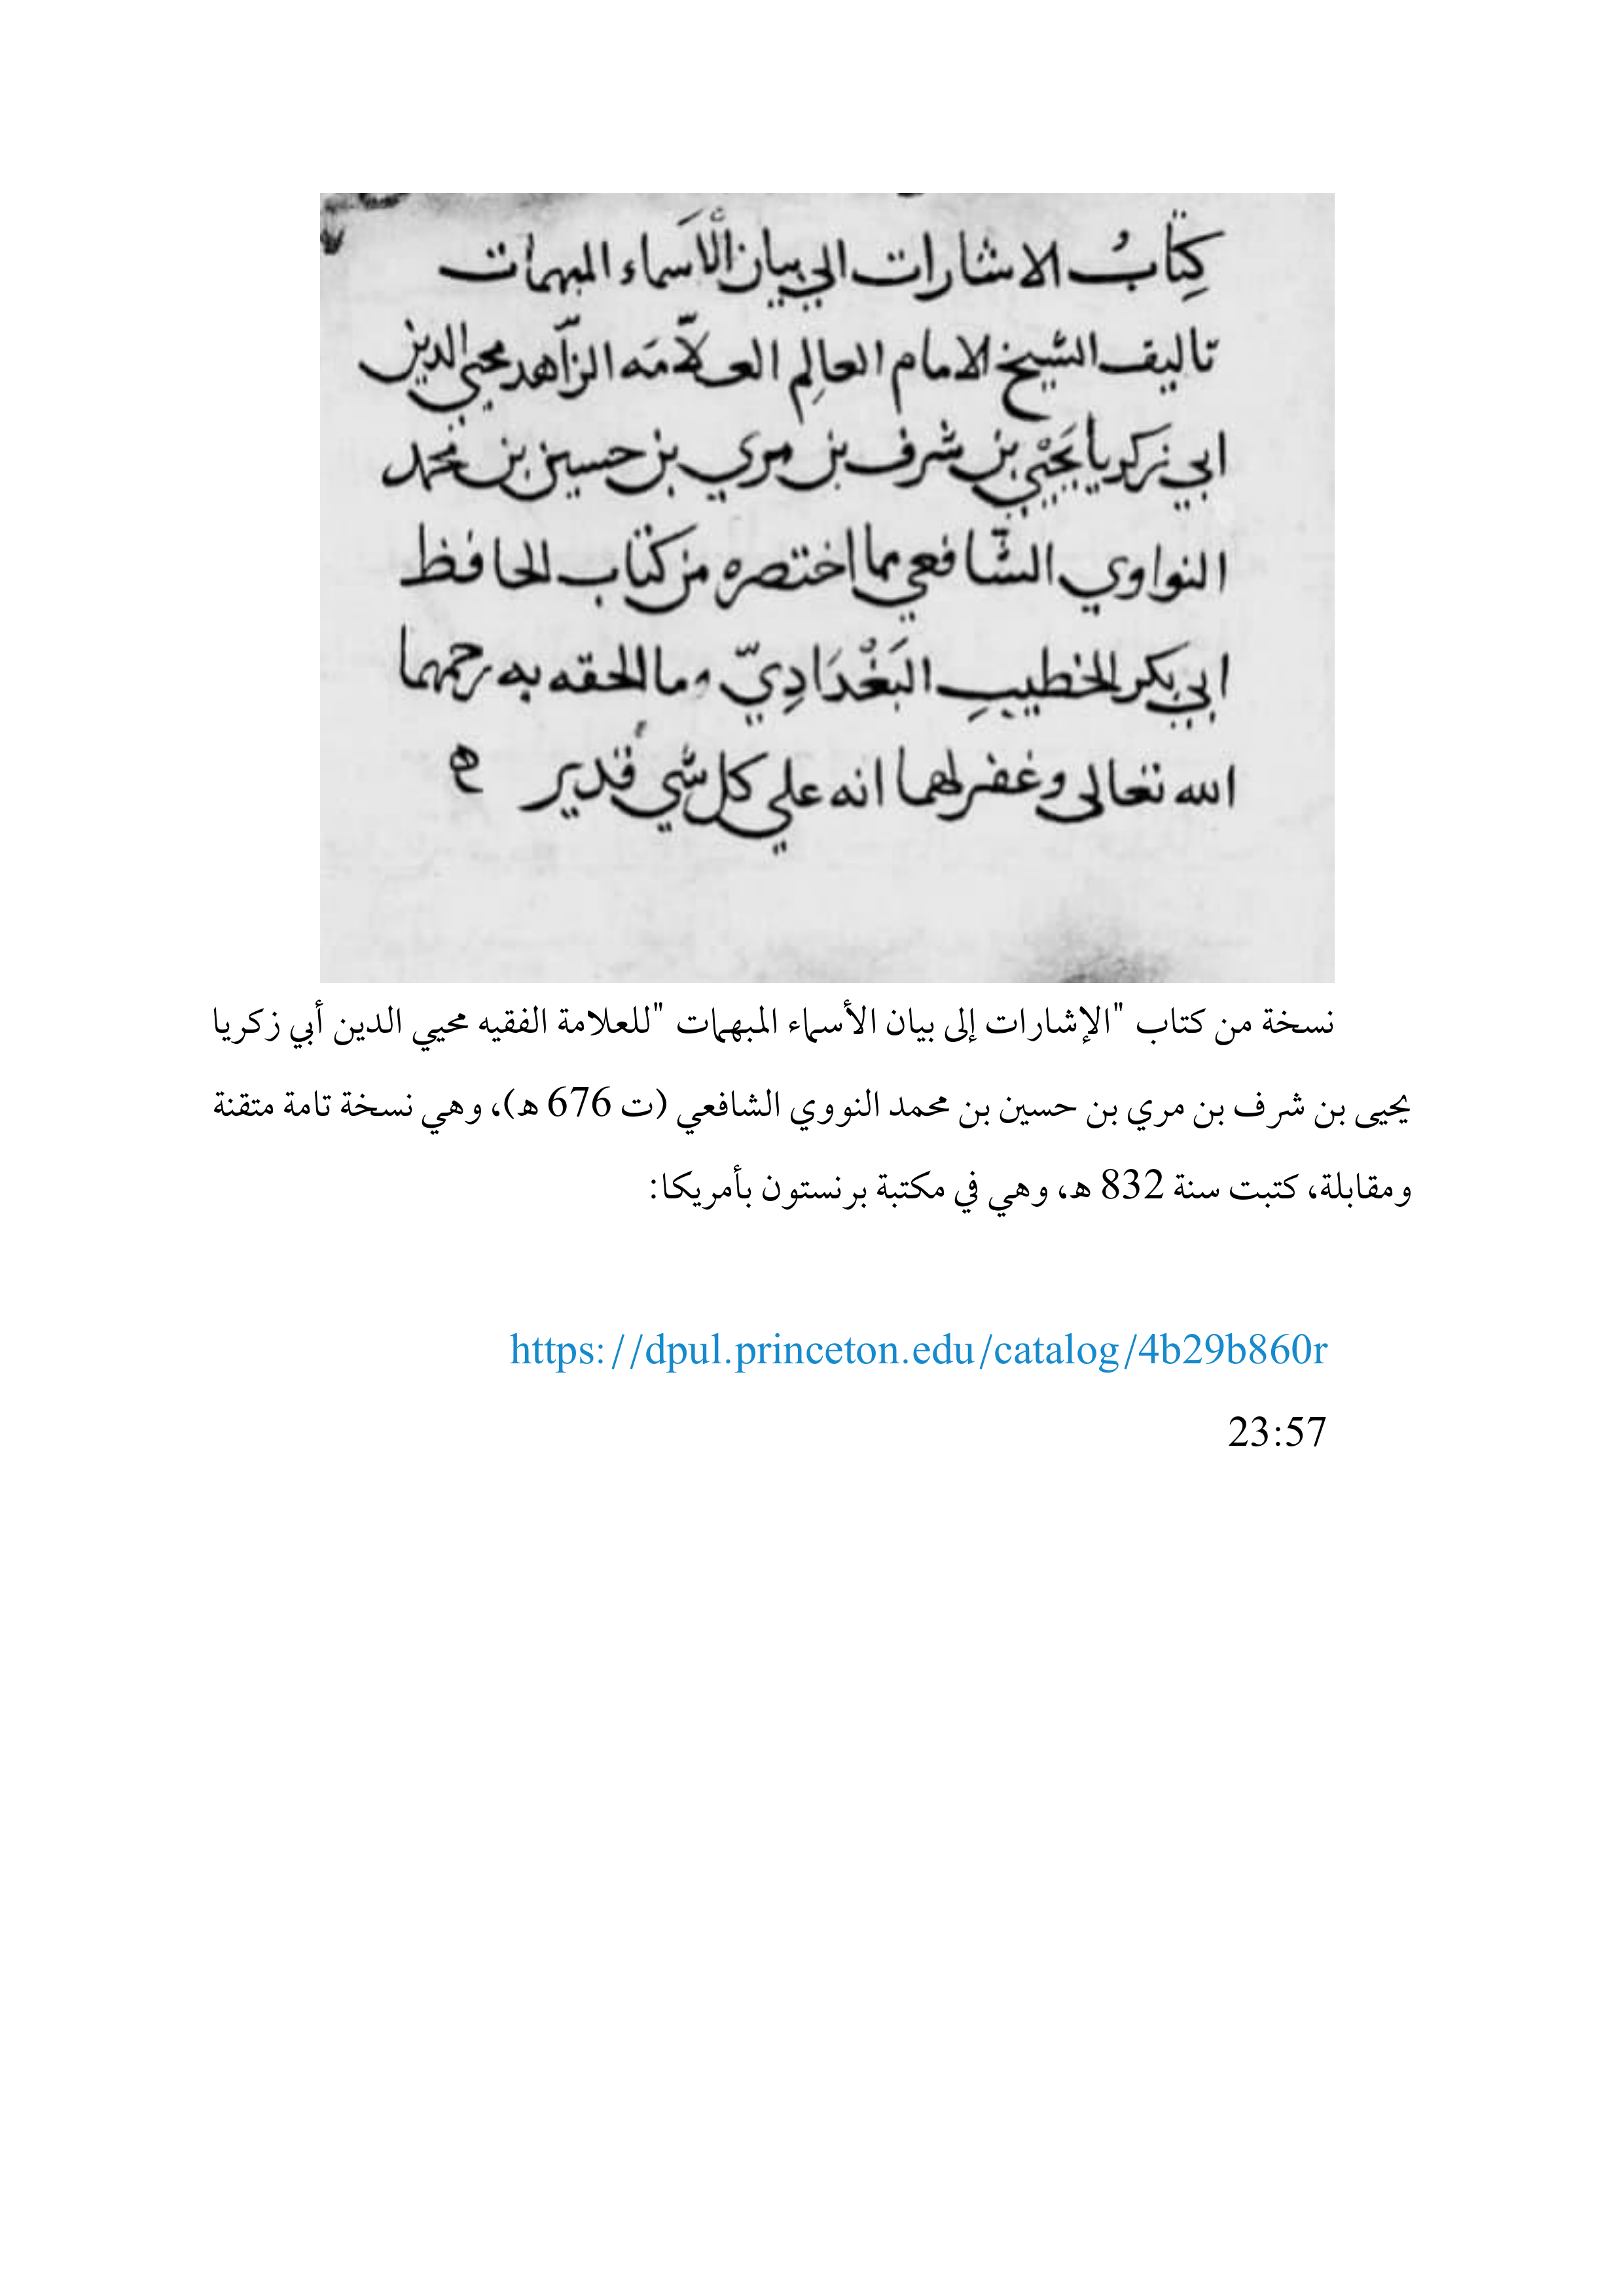 كِتَابُ الاشارات الي بيان الأسَماء المبهمات
تاليف الشيخ الامام العالِم العلاّمَه الزّاهد محيي الدين
ابي زكريا يَحْيي بن شرف بن مري بن حسين بن محمد
النواوي الشّافعي مما اختصره من كتاب الحافظ
ابي بكر الخطيبِ البَغْدَادِيّ وما الحقه به رحمهما
الله تعالى وغفر لهما انه علي كل شي قدير ه
نسخة من كتاب "الإشارات إلى بيان الأسماء المبهمات "للعلامة الفقيه محيي الدين أبي زكريا
يحيى بن شرف بن مري بن حسين بن محمد النووي الشافعي (ت 676 ه)، وهي نسخة تامة متقنة
ومقابلة، كتبت سنة 832 ه، وهي في مكتبة برنستون بأمريكا:
https://dpul.princeton.edu/catalog/4b29b860r
23:57